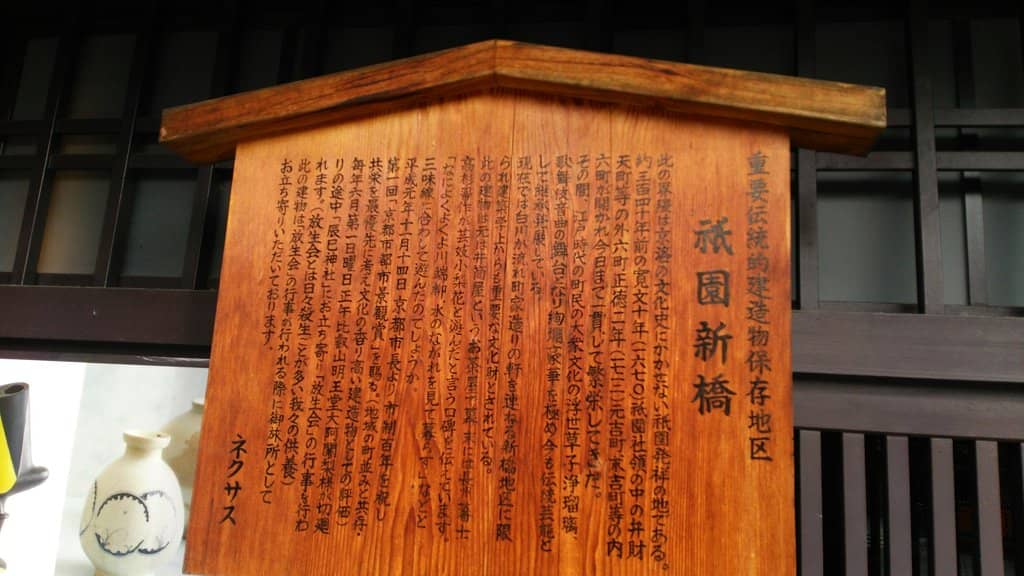 重要伝統的建造物保存地区
祇園新橋
此の界隈は京洛の文化史にかかせない祇園発祥の地である。
約三百四十年前の寛文十年(一六七〇)祇園社領の中の弁財
天町等の外六町正徳二年(一七一二)元吉町、末吉町等の内
六町が開かれ今日まで一貫して繁栄してきた。
その間、江戸時代の町民の大衆文化の浮世草子、浄瑠璃、
歌舞伎、音曲の舞台となり絢爛豪華を極め今も伝統芸能と
して継承発展している。
現在では白川が流れ町家造りの軒を連ねる新橋地区に限
られ建物
此の建物は元は井筒屋と
「なにをくよくよ川端柳 水のながれを見て暮らす」などと
三味線に合わして遊んだのでしょうか。
平成元年十月十四日京都市長より市制百年を祝し
第一回「京都市都市景観賞」を賜る。(地域の町並みと共存、
共栄を最優先に考え文化の香り高い建造物としての評価)
毎年六月第一日曜日正午比叡山明王堂大阿闍梨様が切廻
りの途中「辰巳神社」にお立ち寄り「放生会」の行事も行わ
れます。(放生会とは日々殺生ごとが多い我々の供養)
此の建物は「放生会」の行事の行われる際に御休所として
お立ち寄りいただいております。
ネクサス